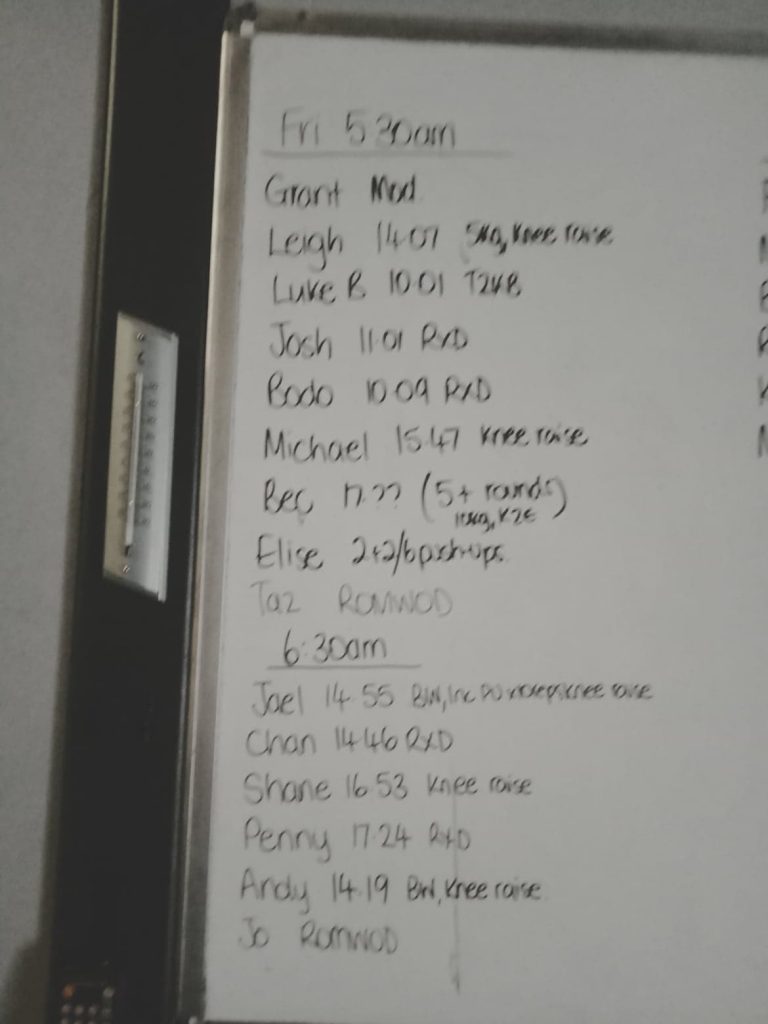 Fri 5:30am
Grant Mod.
Leigh 14.07 5kg, knee raise
Luke B 10.01 T2KB
Josh 11.01 RXD
Bodo 10.09 RXD
Michael 15.47 knee raise
Bec 17.?? (5+ rounds)
10kg, K2E
Elise 2+2/6 push-ups.
Taz ROMWOD
6:30am
Jael 14.55 BW, Inc PU knee raise
Chan 14.46 RXD
Shane 16.53 knee raise
Penny 17.24 RXD
Andy 14.19 BW, knee raise.
Jo ROMWOD